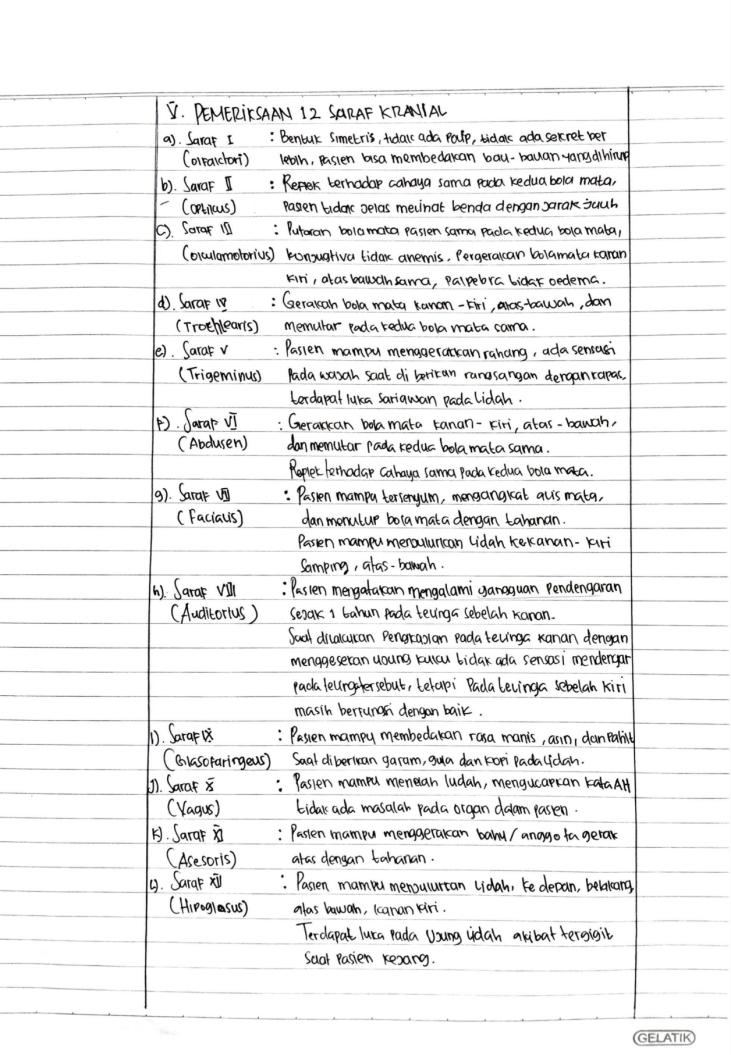 V. PEMERIKSAAN 12 SARAF KRANIAL
a). Saraf I : Bentuk simetris, tidak ada polip, tidak ada sekret ber
(olfaktori) lebih, Pasien bisa membedakan bau-bauan yang dihirup
b). Saraf II : Reflek terhadap cahaya sama pada kedua bola mata,
(Optikus) Pasien tidak jelas melihat benda dengan jarak jauh
c). Saraf III : Putaran bola mata pasien sama pada kedua bola mata,
(okulamotorius) konjugtiva tidak anemis, Pergerakan bolamata kanan
kiri, atas bawah sama, palpebra tidak oedema.
d). Saraf IV : Gerakah bola mata kanan-kiri, atas-bawah, dan
(Troehlearis) memutar pada kedua bola mata sama.
e). Saraf V : Pasien mampu menggerakkan rahang, ada sensasi
(Trigeminus) Pada wajah saat di berikan rangsangan dengan kapas,
terdapat luka sariawan pada lidah.
f). Saraf VI : Gerakkan bola mata kanan-kiri, atas-bawah,
(Abdusen) dan memutar pada kedua bola mata sama.
Reflek terhadap cahaya sama pada kedua bola mata.
g). Saraf VII : Pasien mampu tersenyum, mengangkat alis mata,
(Facialis) dan menutup bola mata dengan tahanan.
Pasien mampu menjulurkan lidah kekanan-kiri
samping, atas-bawah.
h). Saraf VIII : Pasien mengatakan mengalami gangguan Pendengaran
(Auditorius) sejak 1 tahun pada telinga sebelah kanan.
Saat dilakukan Pengkajian pada telinga kanan dengan
menggesekan ujung kuku tidak ada sensasi mendengar
pada telinga tersebut, tetapi Pada telinga sebelah kiri
masih berfungsi dengan baik.
i). Saraf IX : Pasien mampu membedakan rasa manis, asin, dan Pahit
(Glasofaringeus) Saat diberikan garam, gula dan kopi pada lidah.
J). Saraf X : Pasien mampu menelah ludah, mengucapkan kata AH
(Vagus) tidak ada masalah pada organ dalam pasien.
K). Saraf XI : Pasien mampu menggerakan bahu/anggota gerak
(Asesoris) atas dengan tahanan.
l). Saraf XII : Pasien mampu menjulurkan lidah, ke depan, belakang,
(Hipoglasus) atas bawah, kanan kiri.
Terdapat luka pada ujung lidah akibat tergigit
Saat Pasien kejang.
GELATIK